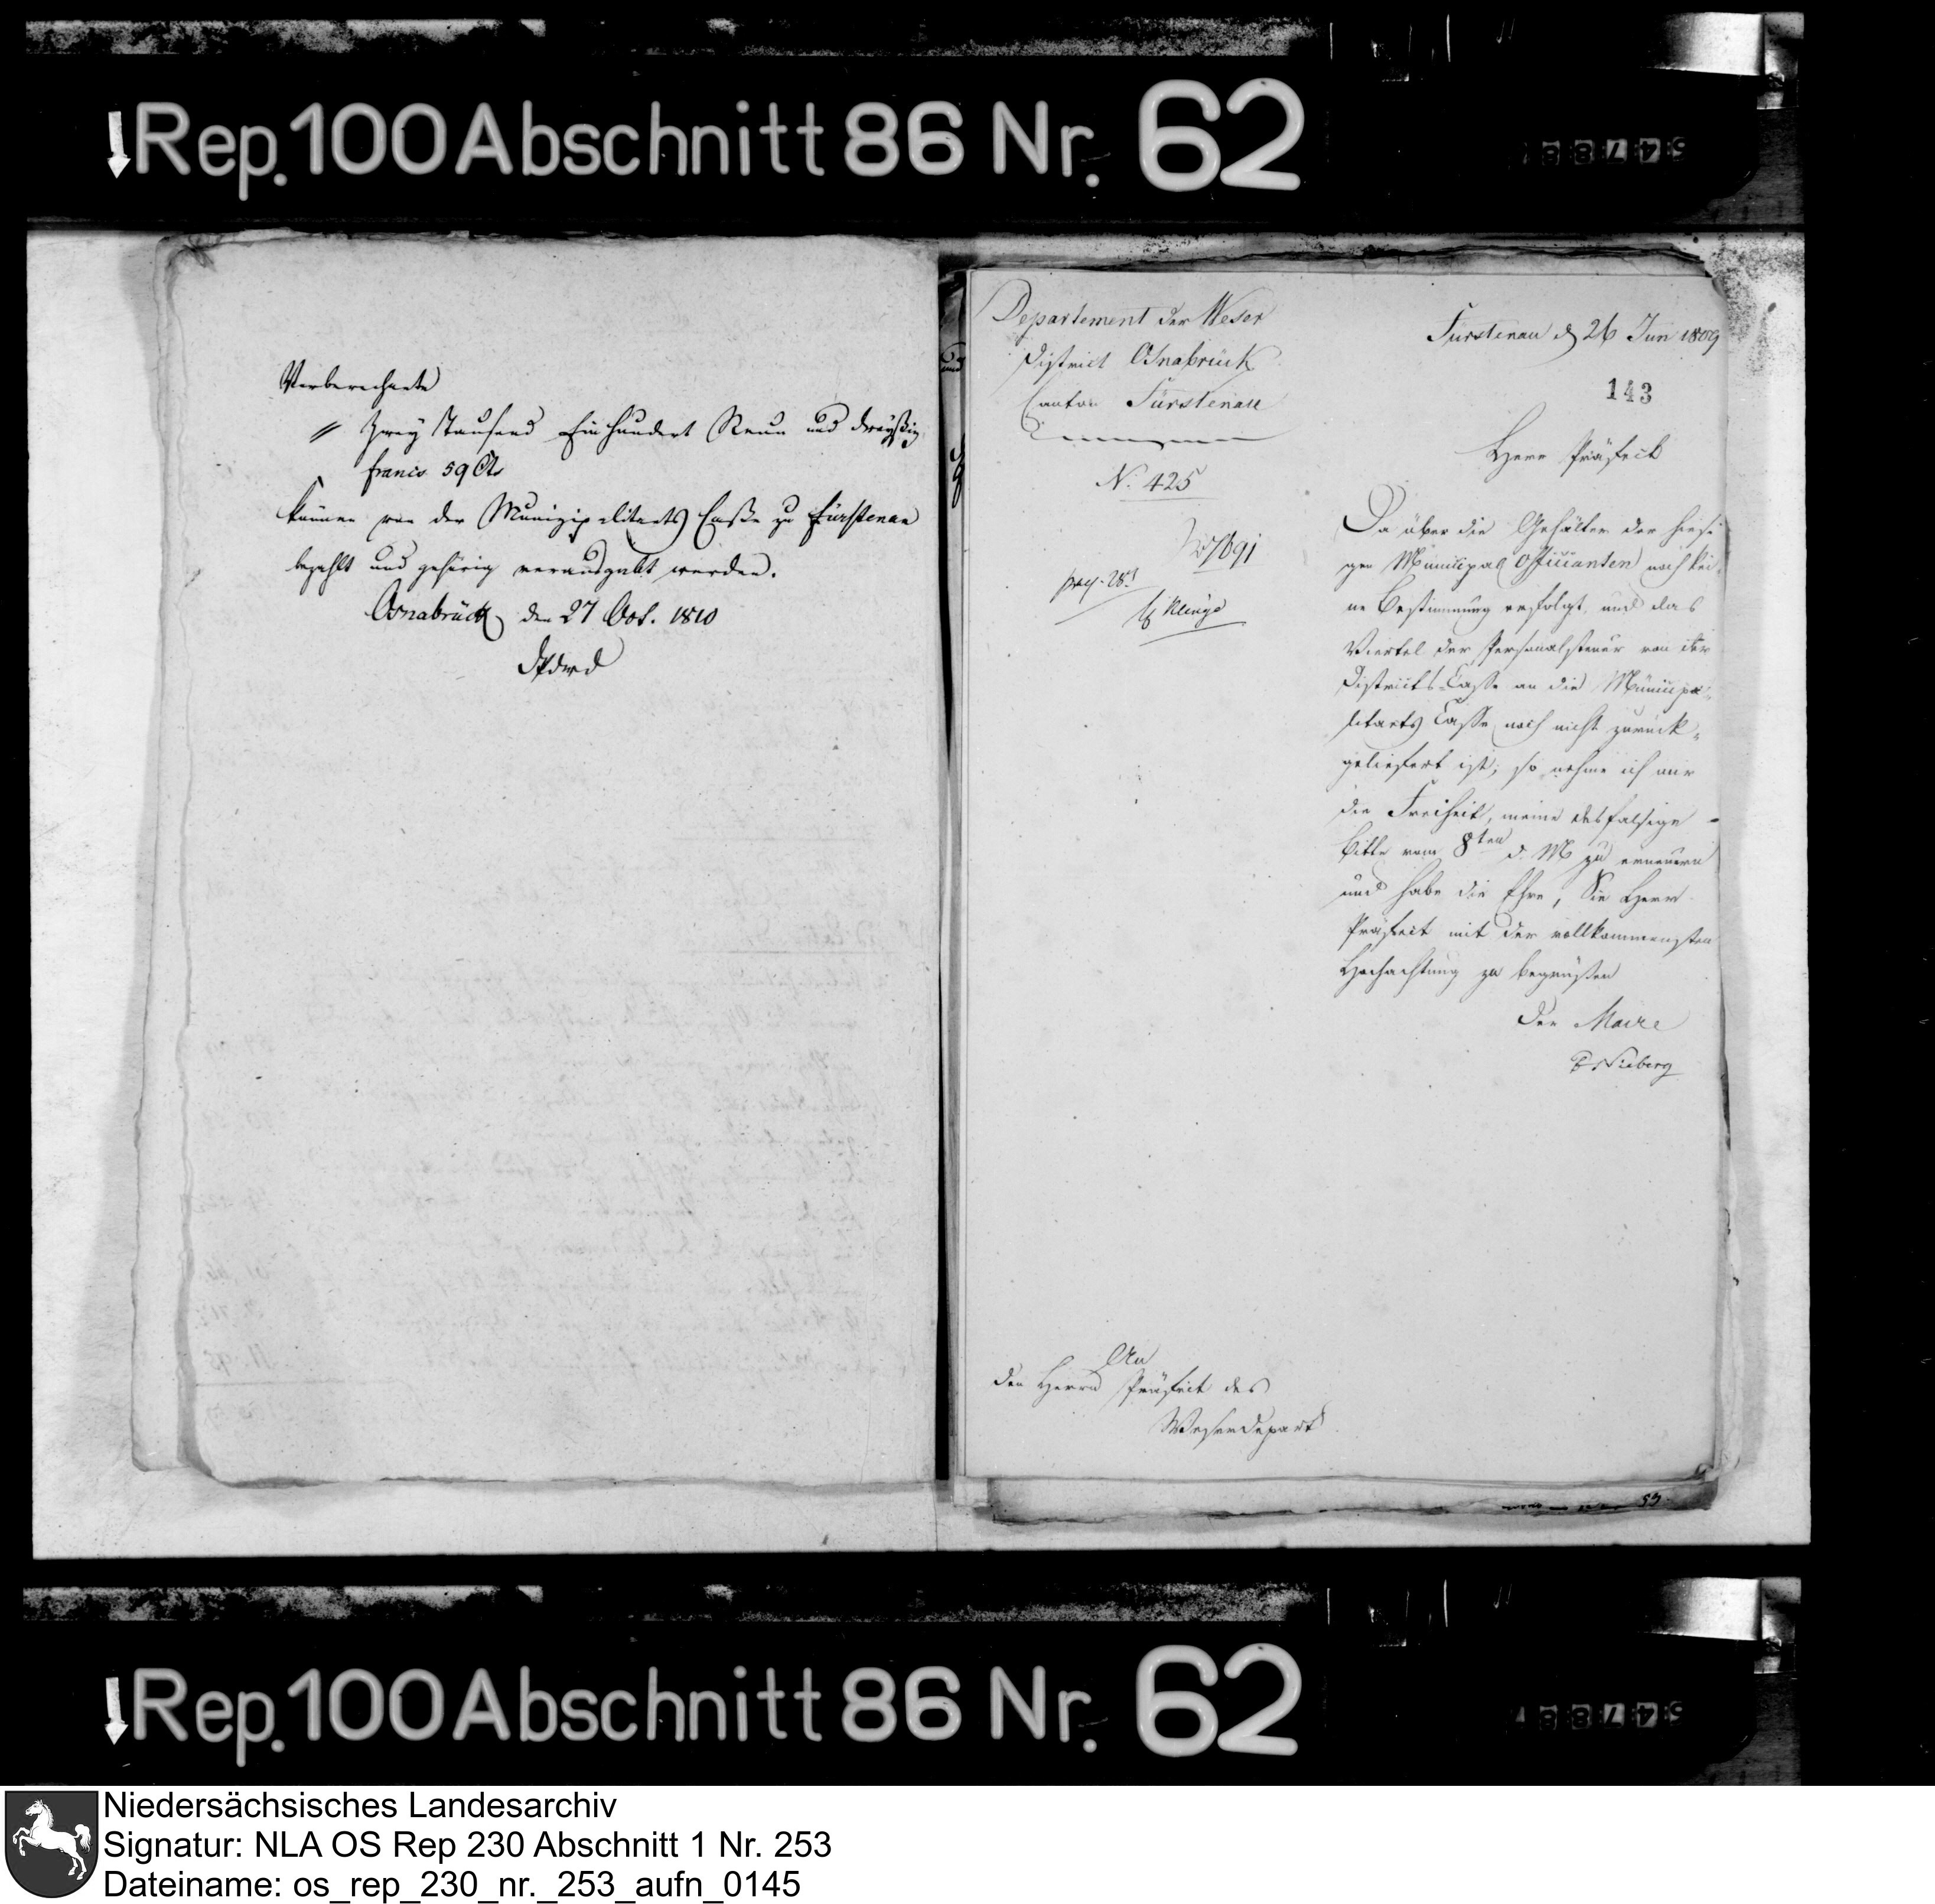 Rep. 100 Abschnitt 86 Nr. 62
Vorberechnete
" Zwey Tausend Ein hundert Neun und dreyßig
francs 59 Cts
können von der Munizipalitaets Casse zu Fürstenau
bezahlt und gehörig verausgabt werden.
Osnabrück den 27 Oct. 1810
Departement der Weser
District Osnabrück
Canton Fürstenau
N. 425
Fürstenau d 26 Jun 1809
143
Herr Präfect
Da über die Gehälter der hiesi
gen Municipal Officianten noch kei
ne Bestimmung erfolgt, und das
Viertel der Personalsteuer von der
Districts-Casse an die Municipa-
litaets Casse noch nicht zurück-
geliefert ist, so nehme ich mir
die Freiheit, meine desfalsige
Bitte vom 8ten d. M zu erneuern
und habe die Ehre, Sie Herr
Präfect mit der vollkommensten
Hochachtung zu begrüßen
Der Maire
An
den Herrn Präfect des
Weserdepart
Rep. 100 Abschnitt 86 Nr. 62
Niedersächsisches Landesarchiv
Signatur: NLA OS Rep 230 Abschnitt 1 Nr. 253
Dateiname: os_rep_230_nr._253_aufn_0145